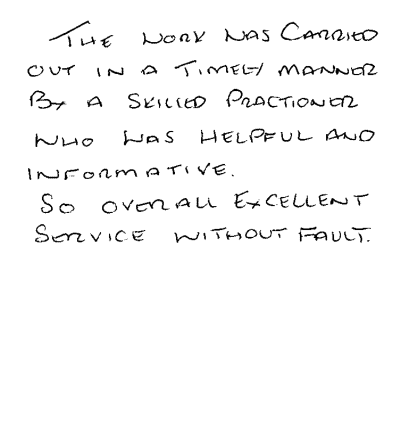 THE WORK WAS CARRIED
OUT IN A TIMELY MANNER
BY A SKILLED PRACTIONER
WHO WAS HELPFUL AND
INFORMATIVE.
SO OVERALL EXCELLENT
SERVICE WITHOUT FAULT.